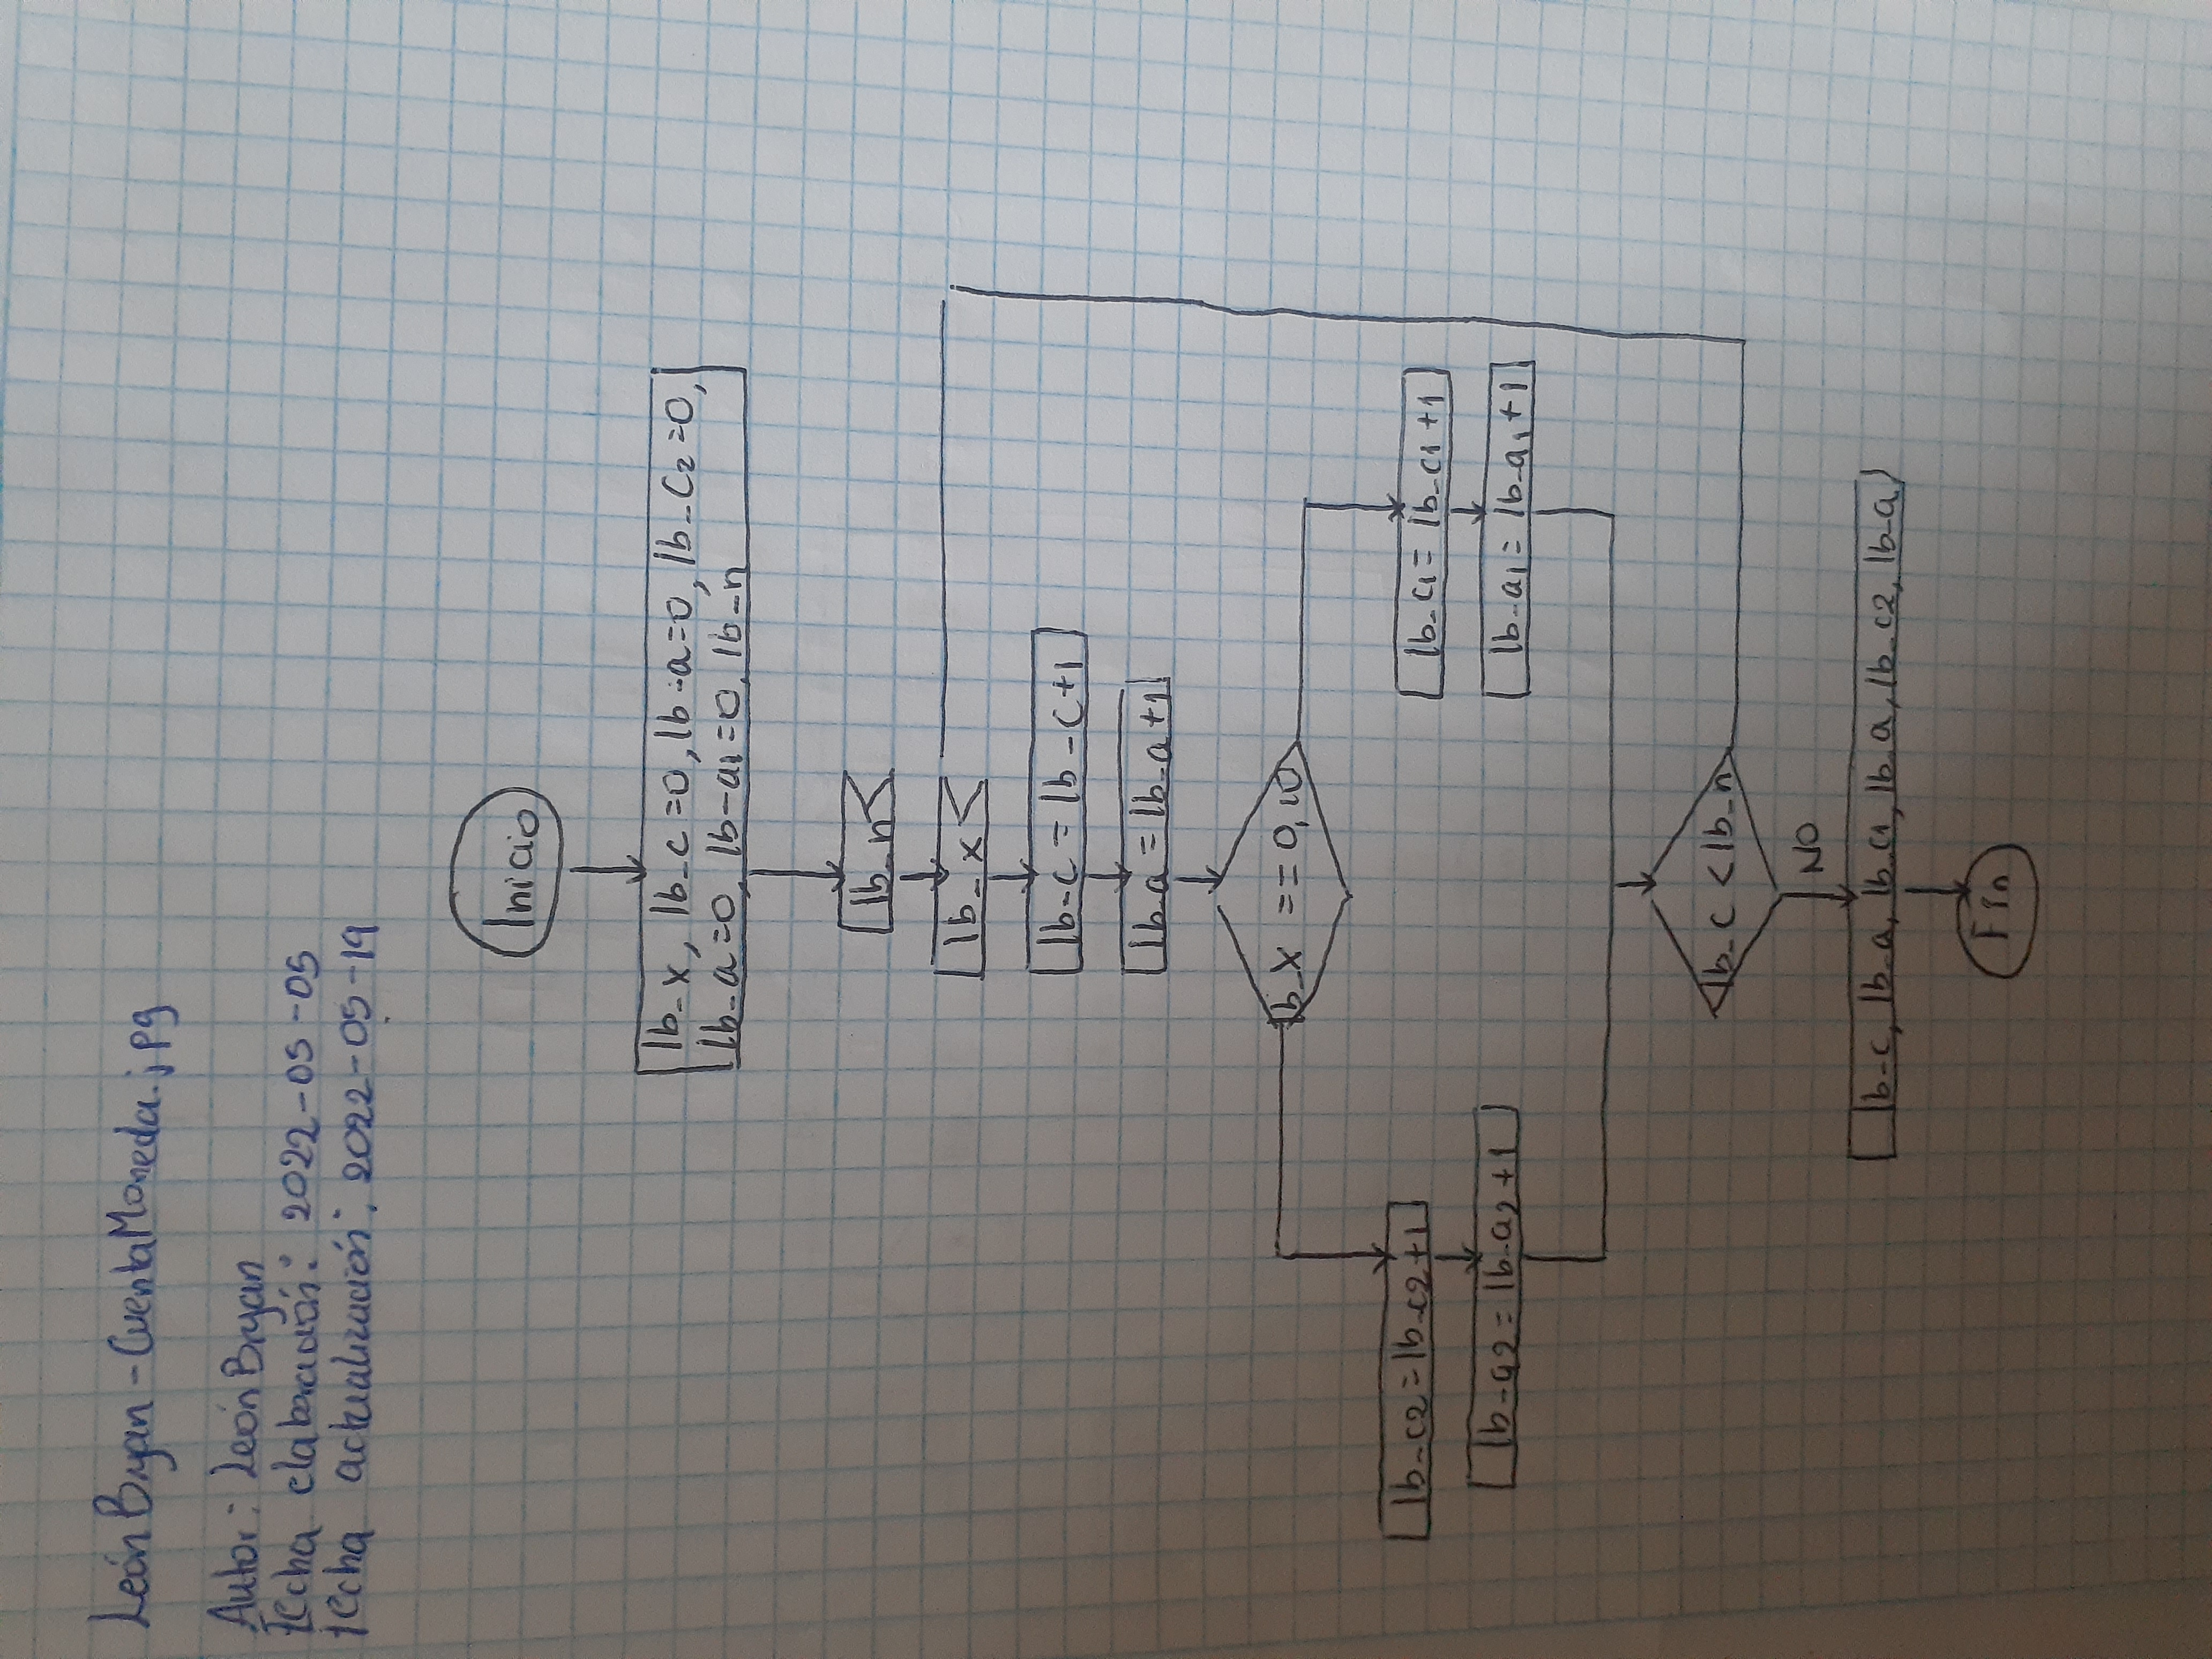 León Bryan - CuentaMoneda.jpg
Autor: León Bryan
Fecha elaboración: 2022-05-05
Fecha actualización: 2022-05-19
Inicio
lb_x, lb_c=0, lb-a=0, lb_C2=0,
lb_a=0, lb-a1=0, lb_n
lb_n
lb_x
lb-c = lb-c+1
lb_a = lb_a+1
lb_x == 0,10
lb_c2=lb_c2+1
lb_c1= lb_c1+1
lb-a2=lb-a2+1
lb-a1= lb-a1+1
lb_c < lb_n
NO
lb-c, lb_a, lb_c1, lb_a, lb_c2, lb_a
Fin